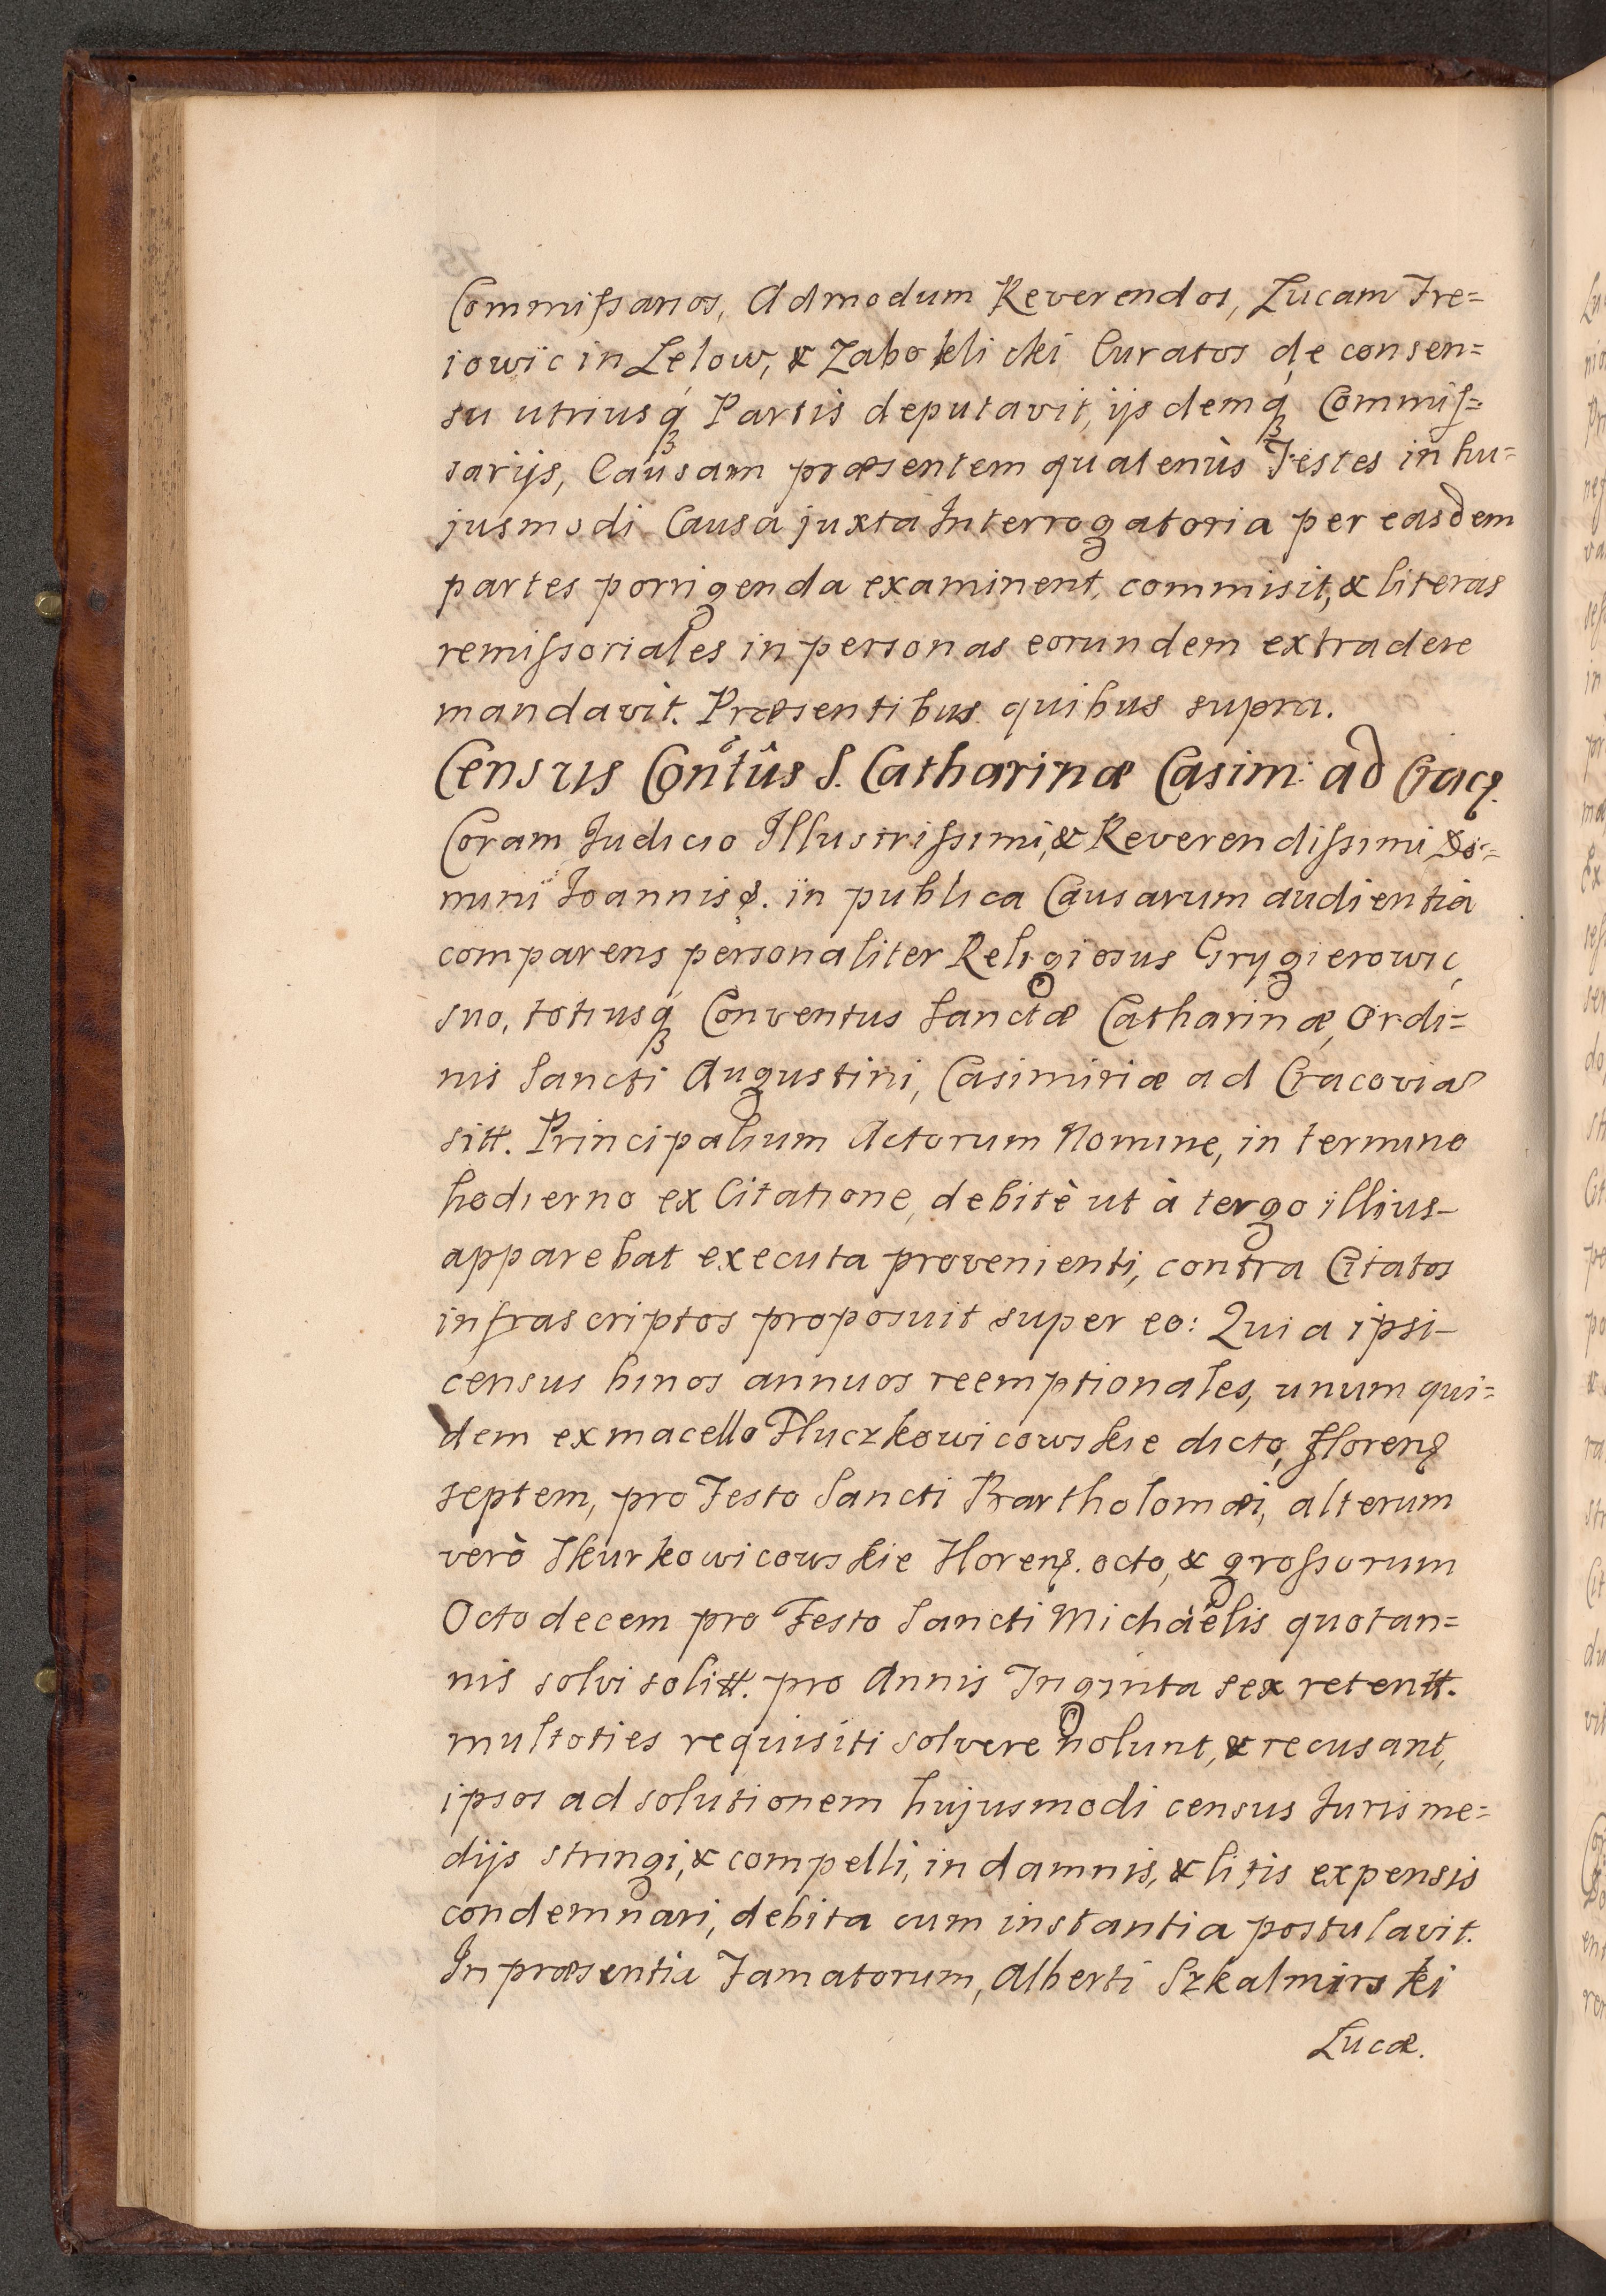 Commissarios, Admodum Reverendos, Lucam Fre=
iowic in Lelow, & Zaboklicki Curatos de consen=
su utriusq́ꝫ Partis deputavit, ijsdemq́ꝫ Commis=
sarijs, Causam præsentem quatenùs Testes in hu=
jusmodi Causa juxta Interrogatoria per easdem
partes porrigenda examinent, commisit, & literas
remissoriales in personas eorundem extradere
mandavit. Præsentibus quibus supra.
Census Contûs S. Catharinæ Casim: ad Crac.
Coram Iudicio Illustrissimi, & Reverendissimi Do=
mini Ioannis &. in publica Causarum audientia
comparens personaliter Religiosus Grygierowic,
suo, totiusq́ꝫ Conventus Sanctæ Catharinæ, Ordi=
nis Sancti Augustini, Casimiriæ ad Cracovia
sitt. Principalium Actorum Nomine, in termino
hodierno ex Citatione, debitè ut à tergo illius
apparebat executa provenienti, contra Citatos
infrascriptos proposuit super eo: Quia ipsi
census binos annuos reemptionales, unum qui=
dem ex macello Tluczkowicowskie dicto, floren
septem, pro Festo Sancti Bartholomæi, alterum
verò Skurkowicowskie floren. octo, & grossorum
Octodecem pro Festo Sancti Michaëlis quotan=
nis solvi solitt. pro Annis Triginta sex retentt.
multoties requisiti solvere nolunt, & recusant,
ipsos ad solutionem hujusmodi census Iuris me=
dijs stringi, & compelli, in damnis, & litis expensis
condemnari, debita cum instantia postulavit.
In præsentia Famatorum, Alberti Szkalmirski
Lucæ.